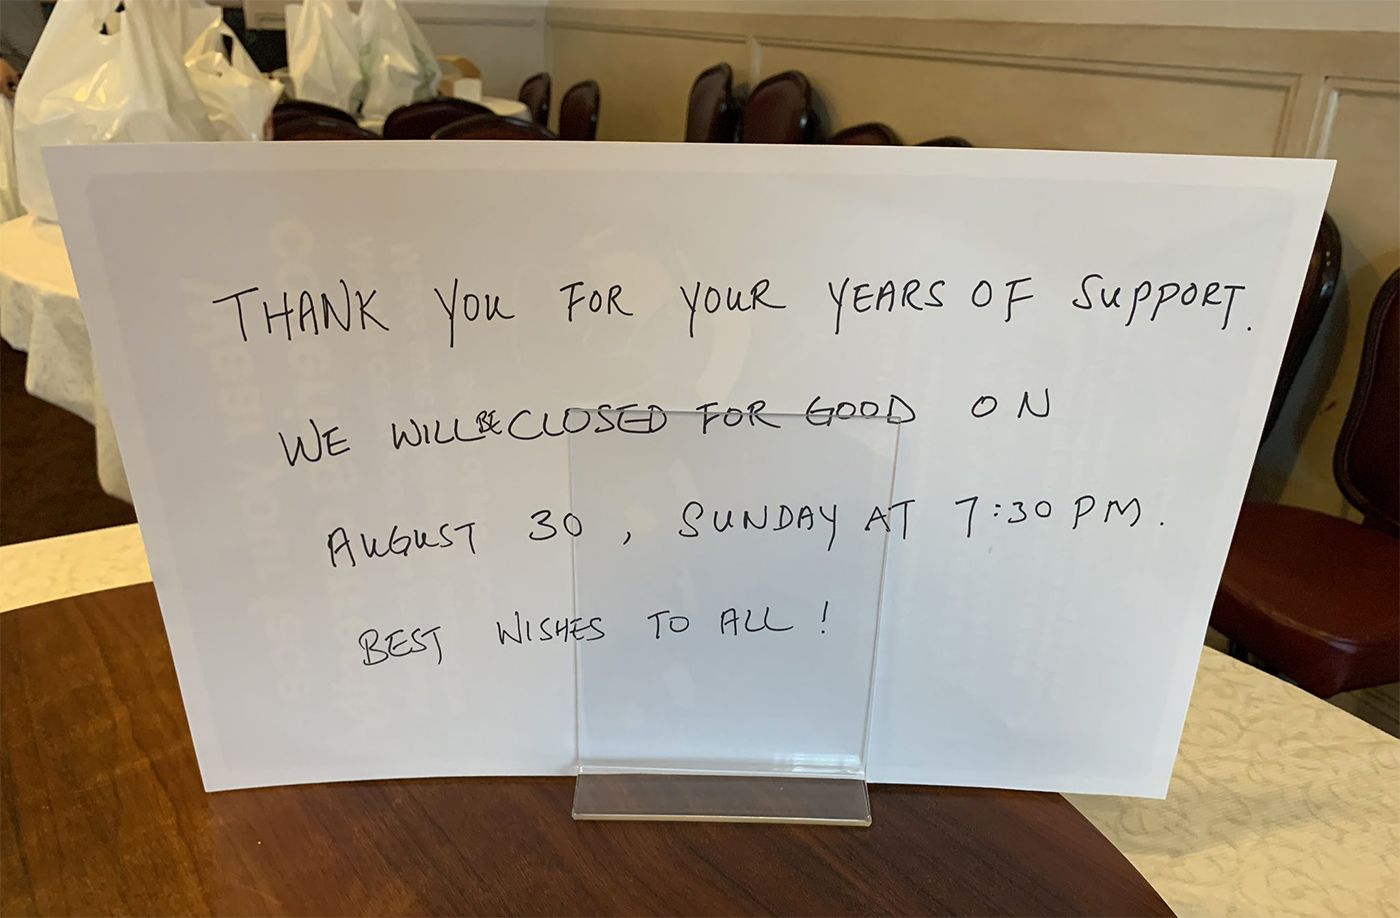 THANK YOU FOR YOUR YEARS OF SUPPORT.
WE WILL BE CLOSED FOR GOOD ON
AUGUST 30, SUNDAY AT 7:30 PM.
BEST WISHES TO ALL!